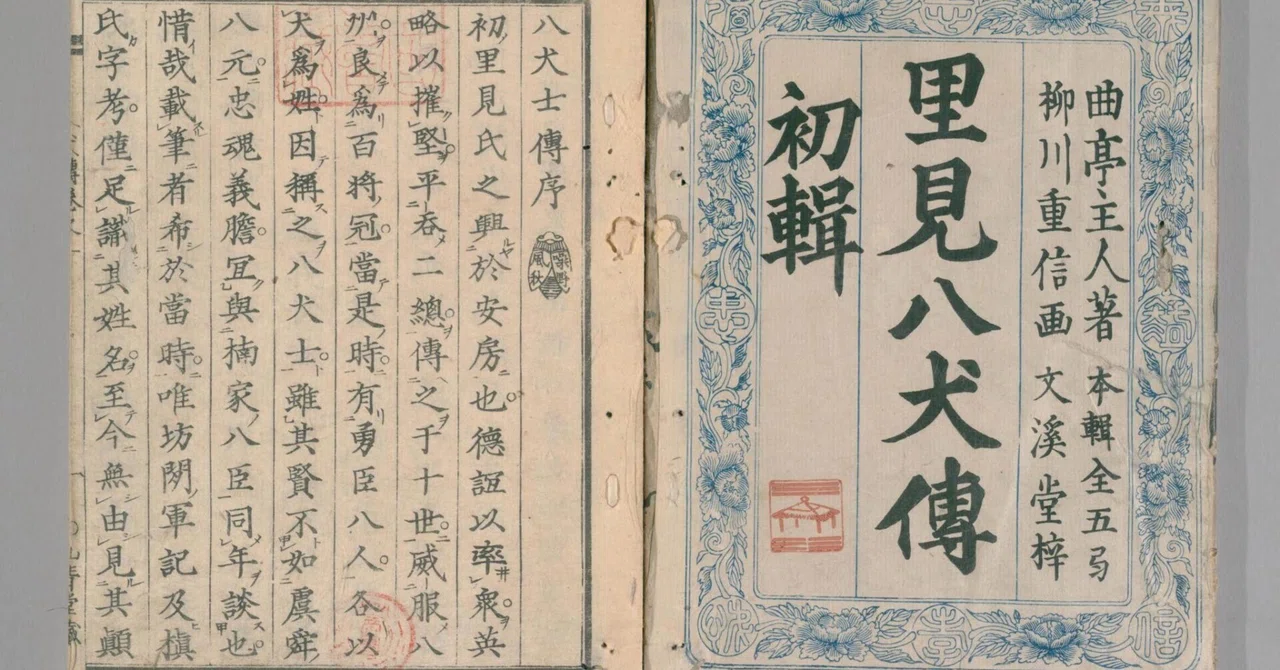 曲亭主人著 本輯全五弓
柳川重信画 文溪堂梓
里見八犬傳
初輯
八犬士傳序
初里見氏之興於安房也德誼以率衆英
略以摧堅平呑二總傳之于十世威服八
州良爲百將冠當是時有勇臣八人各以
犬爲姓因稱之八犬士雖其賢不如虞舜
八元忠魂義膽冝與楠家八臣同年談也
惜哉載筆者希於當時唯坊間軍記及槇
氏字考僅足識其姓名至今無由見其顛